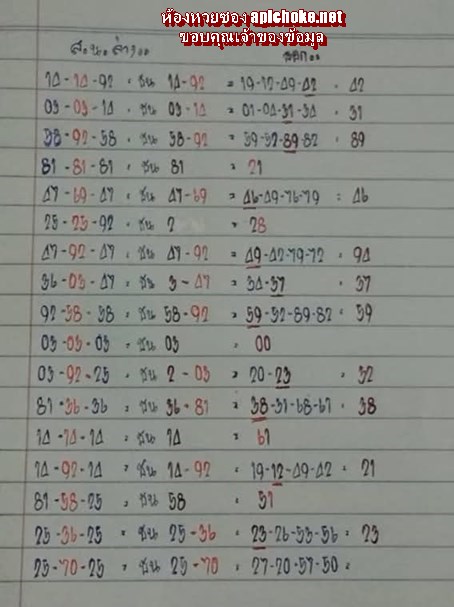 ห้องหวยซอง apichoke.net
ขอบคุณเจ้าของข้อมูล
ส.น.ล่าง..
ออก..
14-14-92 = ชน 14-92 = 19-12-49-42 = 42
03-03-14 = ชน 03-14 = 01-04-31-34 = 31
58-92-58 = ชน 58-92 = 59-52-89-82 = 89
81-81-81 = ชน 81 = 21
47-69-47 = ชน 47-69 = 46-49-76-79 = 46
25-25-92 = ชน 2 = 28
47-92-47 = ชน 47-92 = 49-42-79-72 = 94
36-03-47 = ชน 3-47 = 34-37 = 37
92-58-58 = ชน 58-92 = 59-52-89-82 = 59
03-03-03 = ชน 03 = 00
03-92-25 = ชน 2-03 = 20-23 = 32
81-36-36 = ชน 36-81 = 38-31-68-61 = 38
14-14-14 = ชน 14 = 61
14-92-14 = ชน 14-92 = 19-12-49-42 = 21
81-58-25 = ชน 58 = 51
25-36-25 = ชน 25-36 = 23-26-53-56 = 23
25-70-25 = ชน 25-70 = 27-20-57-50 =